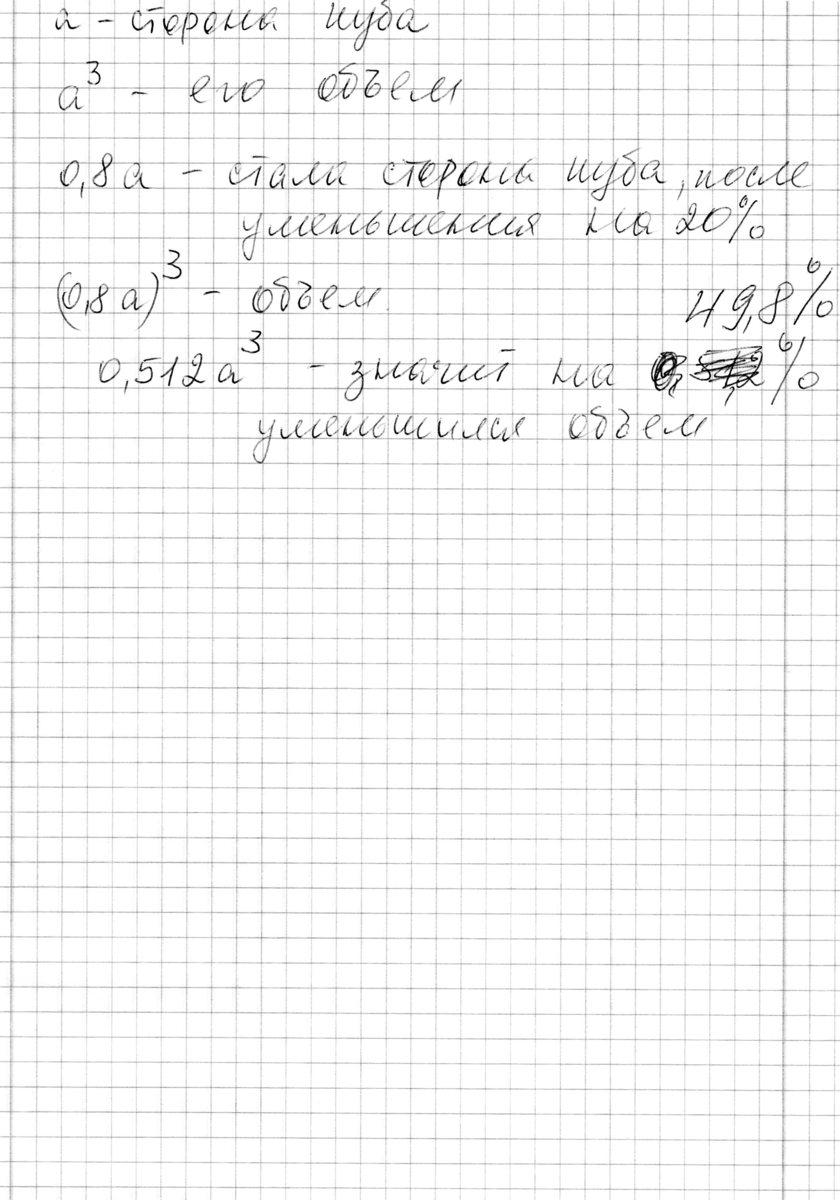 a - сторона куба
a³ - его объем
0,8a - стала сторона куба, после
уменьшения на 20%
(0,8a)³ - объем.
49,8%
0,512a³ - значит на %
уменьшился объем